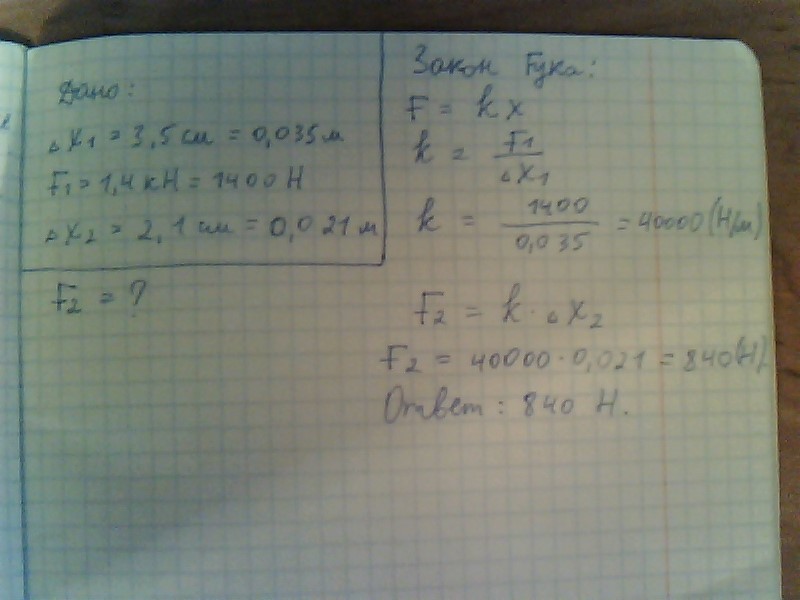 Дано:
△x₁ = 3,5 см = 0,035 м
F₁ = 1,4 кН = 1400 Н
△x₂ = 2,1 см = 0,021 м
F₂ = ?
Закон Гука:
F = k x
k = F₁ / △x₁
k = 1400 / 0,035 = 40000 (Н/м)
F₂ = k · △x₂
F₂ = 40000 · 0,021 = 840 (Н)
Ответ: 840 Н.